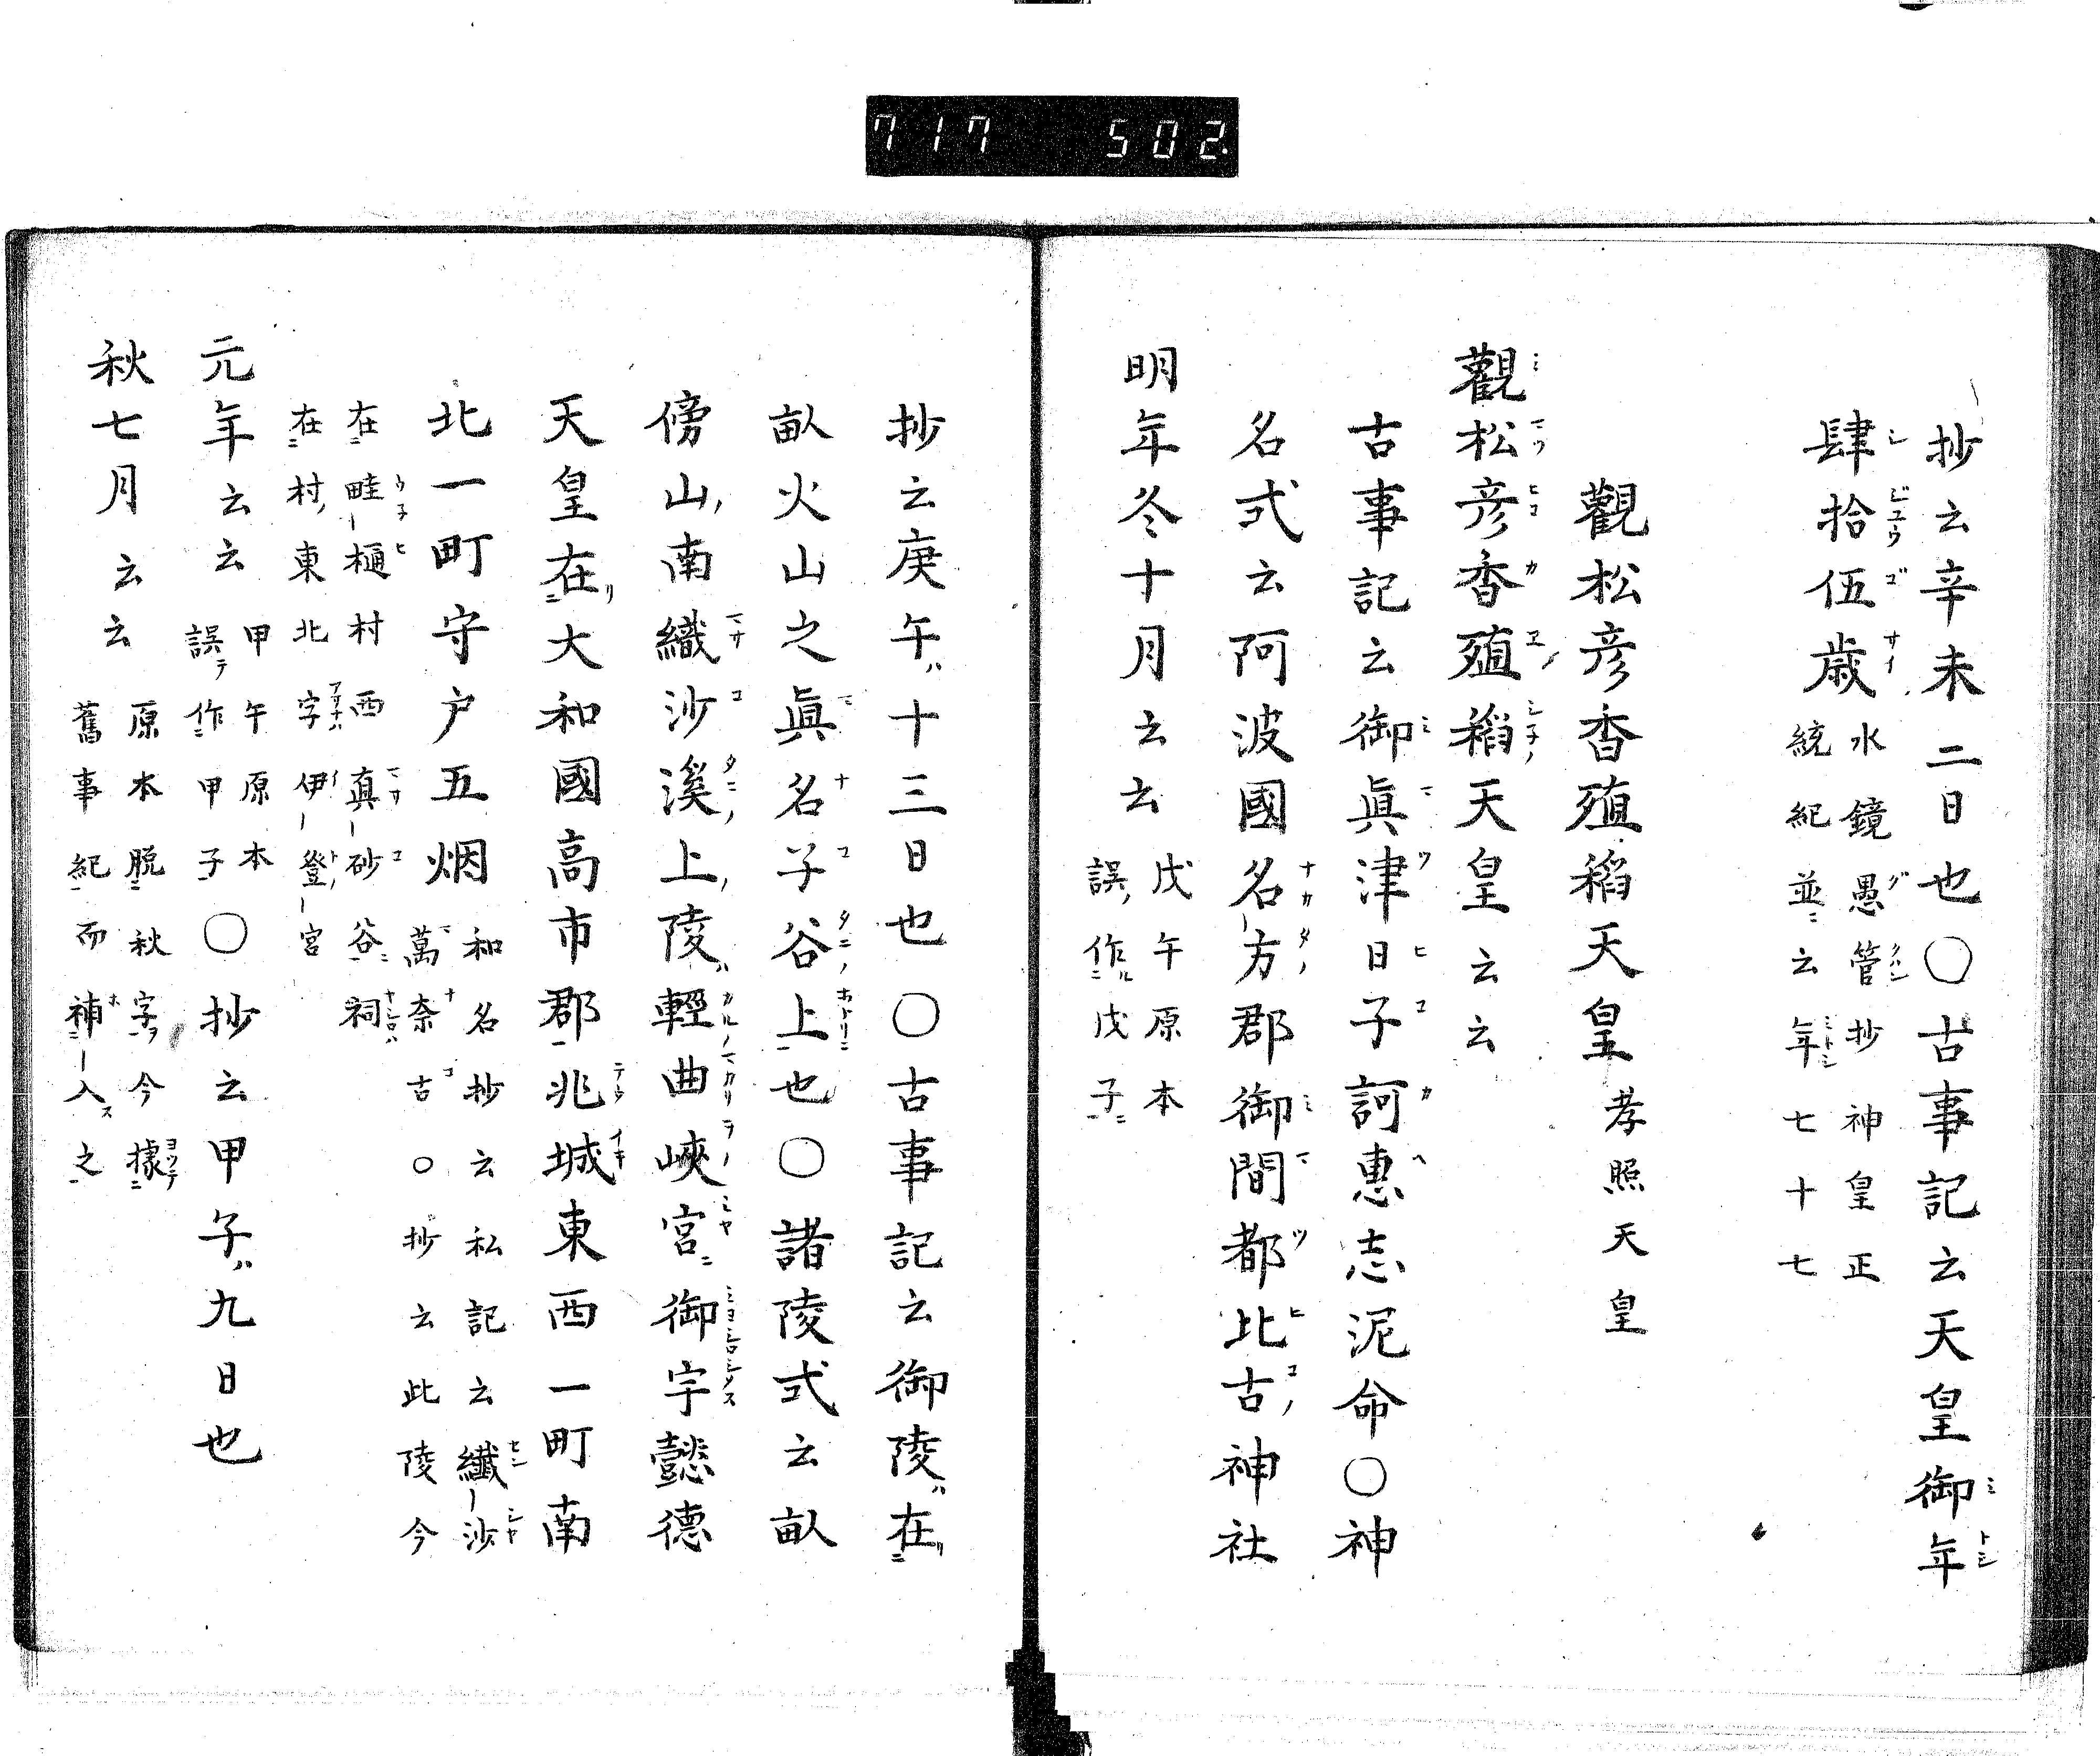 717 502.
抄云辛未二日也〇古事記云天皇御年
肆拾伍歳 水鏡愚管抄神皇正
統紀並云年七十七
觀松彦香殖稻天皇 孝照天皇
觀松彦香殖稻天皇云云
古事記云御眞津日子訶惠志泥命〇神
名式云阿波國名方郡御間都比古神社
明年冬十月云云 戊午原本
誤作戊子
抄云庚午ハ十三日也〇古事記云御陵ハ在
畝火山之眞名子谷上也〇諸陵式云畝
傍山南纎沙溪上陵ハ輕曲峽宮御宇懿德
天皇在大和國高市郡兆城東西一町南
北一町守戸五烟 和名抄云私記云纖沙
萬奈古〇抄云此陵今
在畦樋村西真砂谷祠
在村東北字伊登宮
元年云云 甲午原本
誤テ作甲子〇抄云甲子ハ九日也
秋七月云云 原本脱秋字今據
舊事紀而補入之